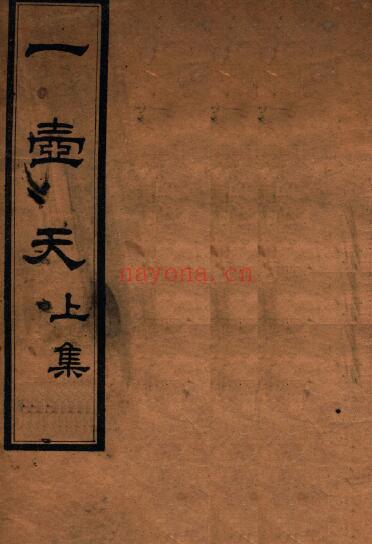 一壺天上集
nayona.cn